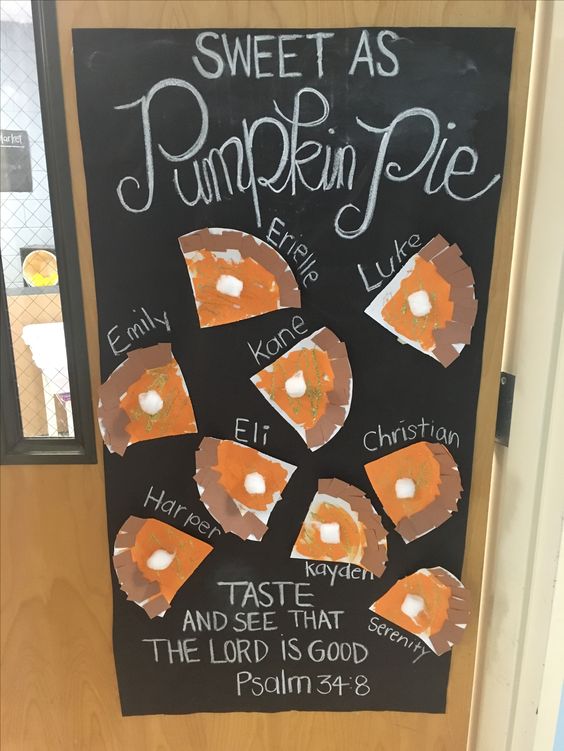 SWEET AS
Pumpkin Pie
Market
Erielle
Luke
Emily
Kane
Eli
Christian
Harper
Kayden
Serenity
TASTE
AND SEE THAT
THE LORD IS GOOD
Psalm 34:8